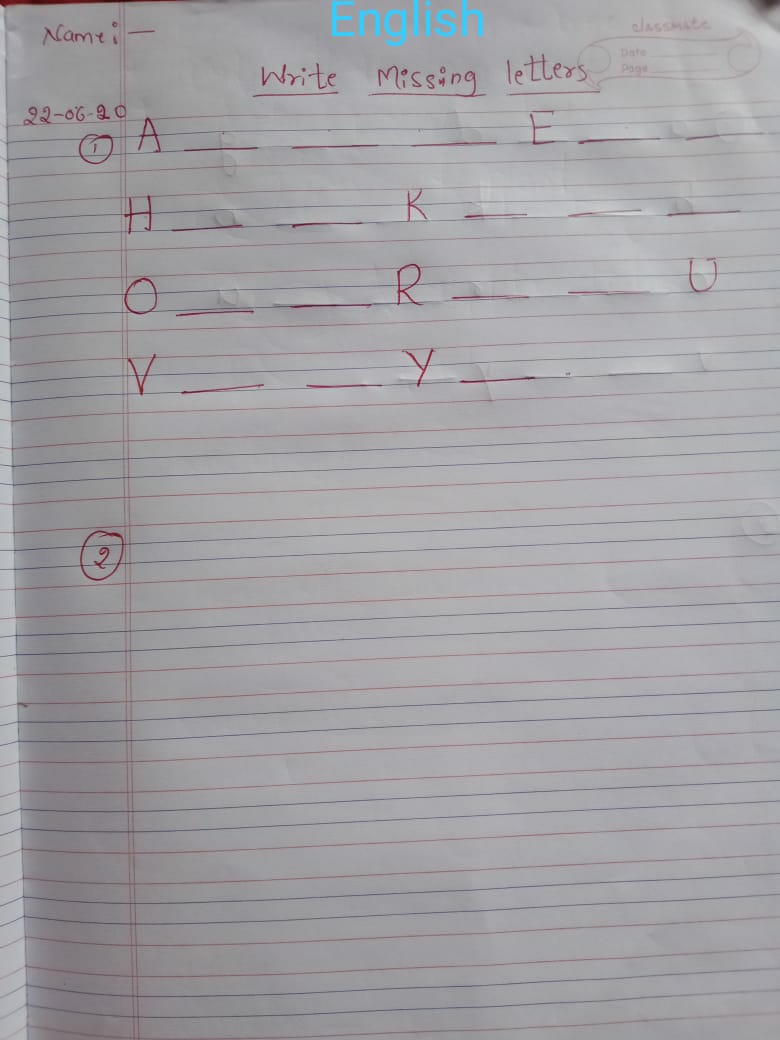 English
Name:-
classmate
Date
Page
Write Missing letters
22-06-20
① A __ __ __ E __ __
H __ __ K __ __ __
O __ __ R __ __ U
V __ __ Y __ . __
②